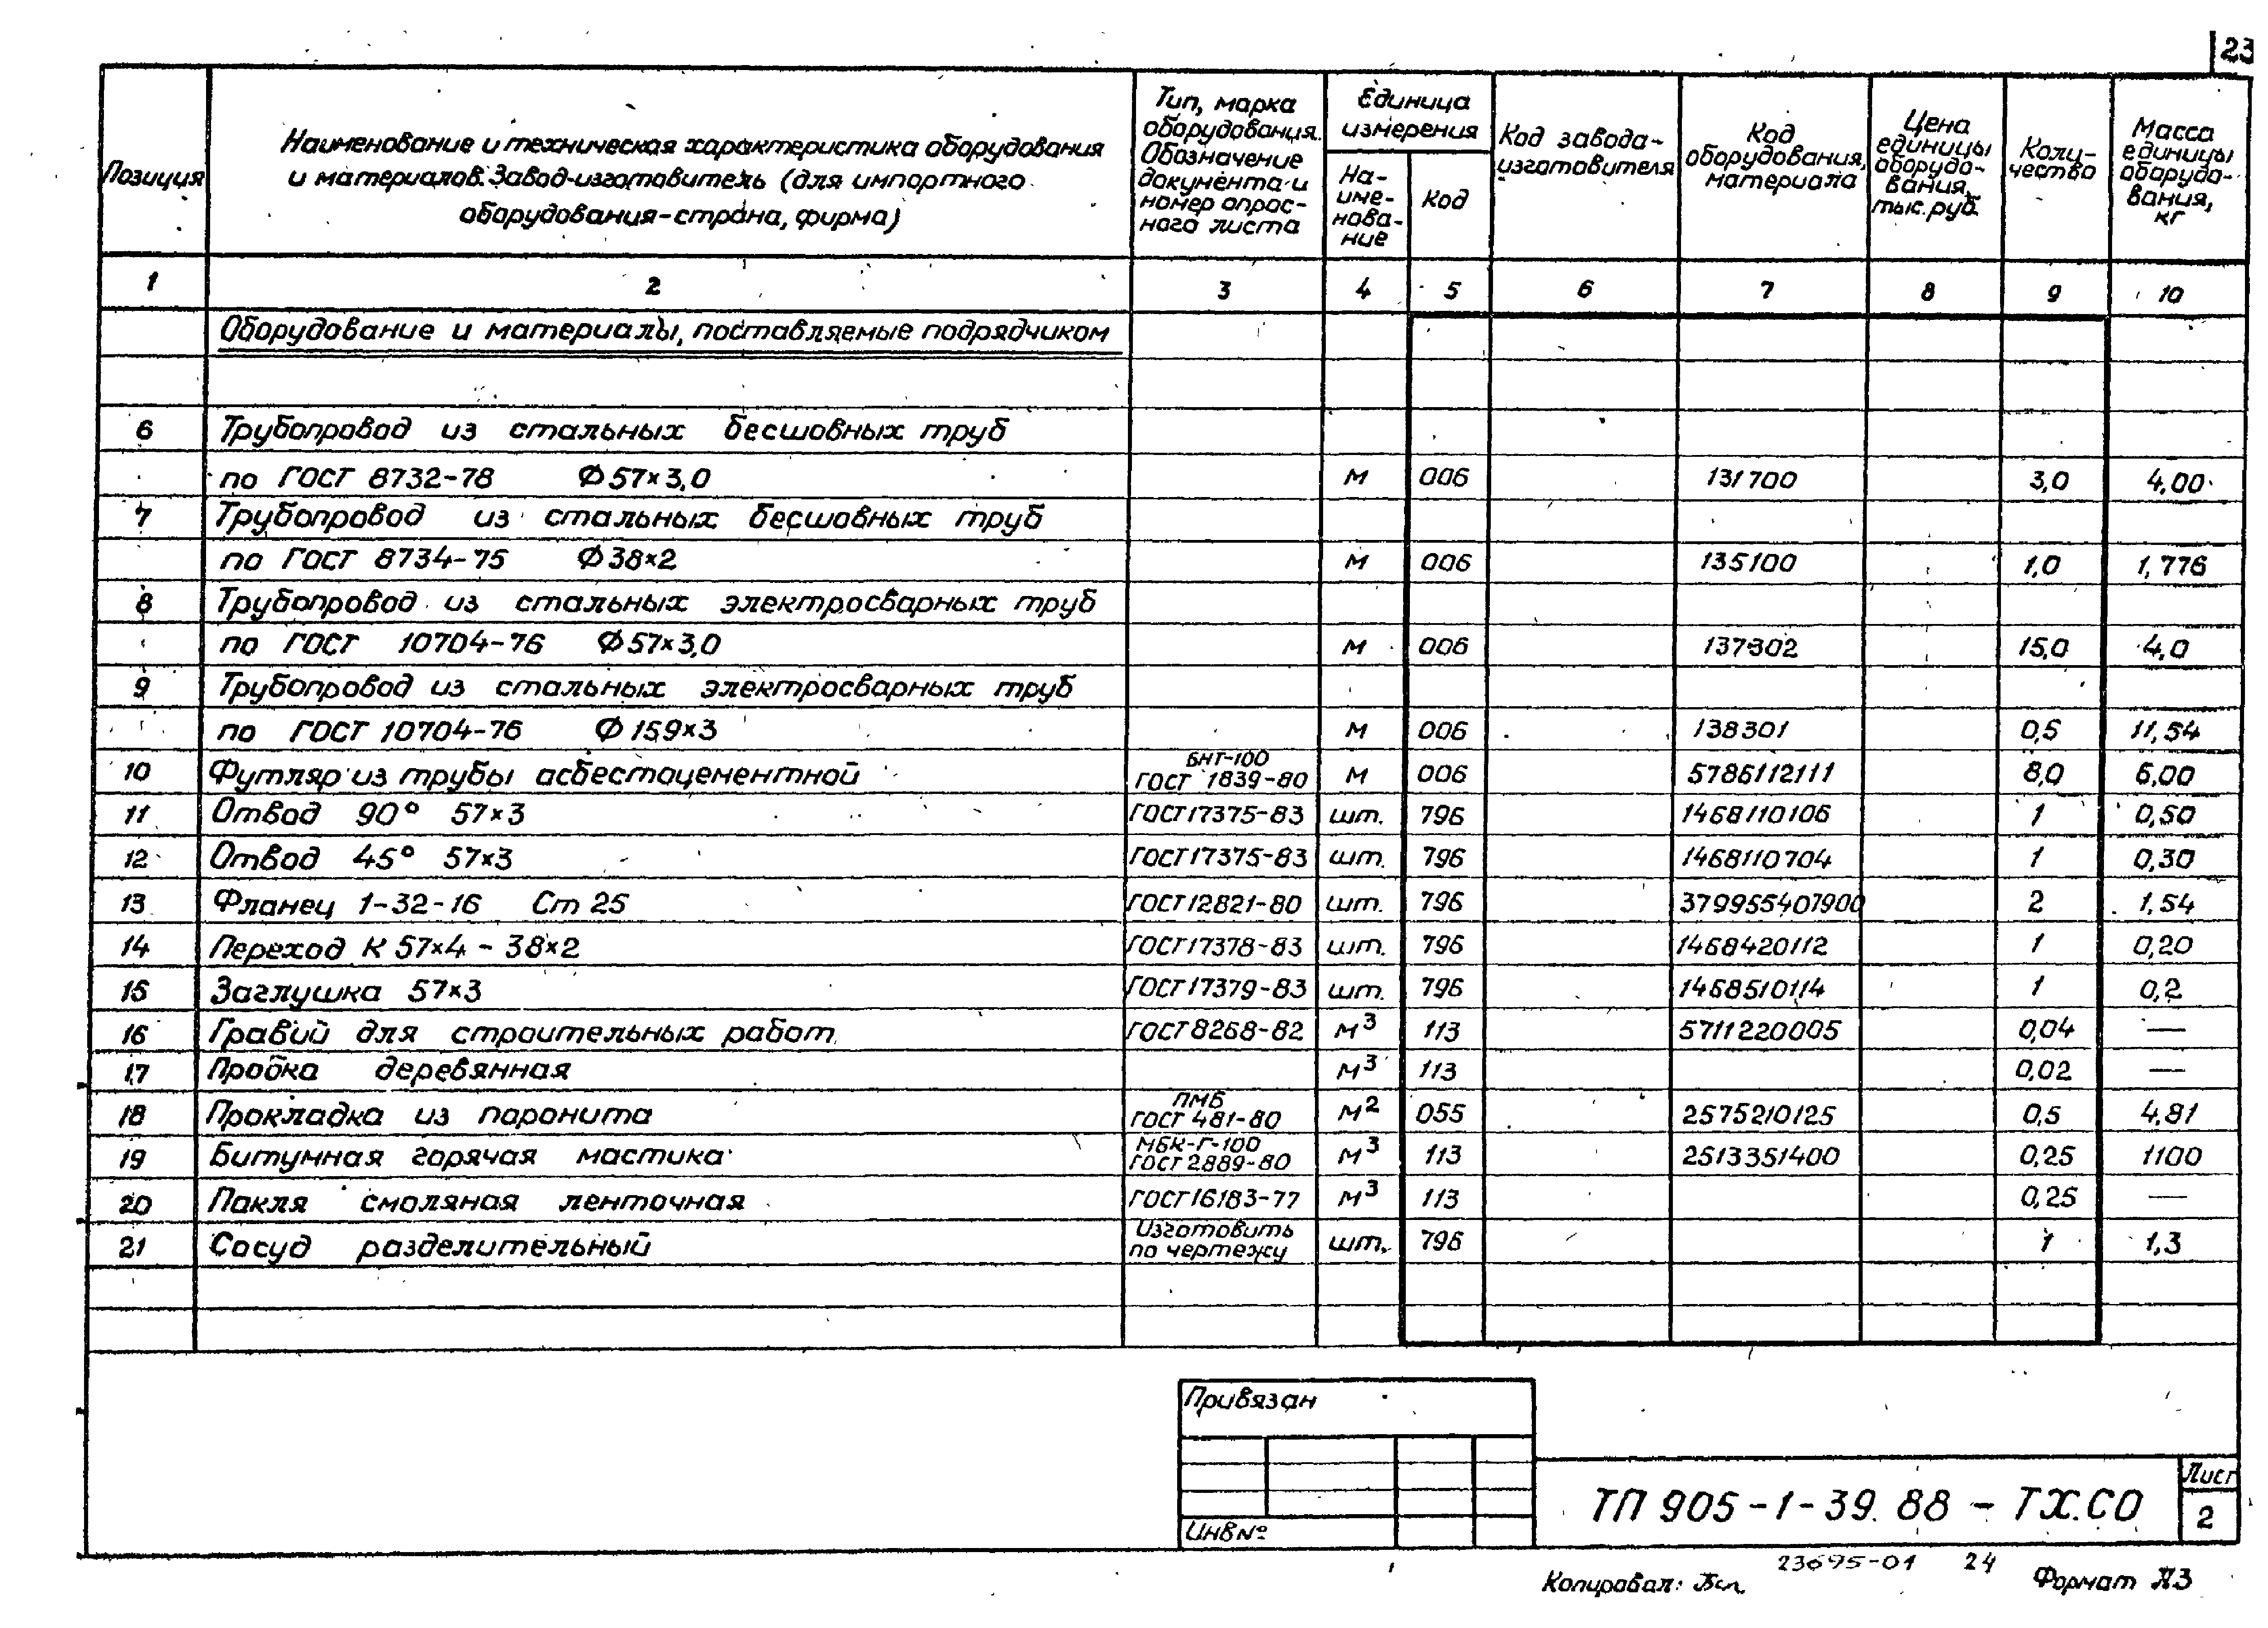 23
Позиция
Наименование и техническая характеристика оборудования
и материалов. Завод-изготовитель (для импортного
оборудования-страна, фирма)
Тип, марка
оборудования.
Обозначение
документа и
номер опрос-
ного листа
Единица
измерения
На-
име-
нова-
ние
Код
Код завода-
изготовителя
Код
оборудования,
материала
Цена
единицы
оборудо-
вания,
тыс. руб.
Коли-
чество
Масса
единицы
оборудо-
вания,
кг
1 2 3 4 5 6 7 8 9 10
Оборудование и материалы, поставляемые подрядчиком
6 Трубопровод из стальных бесшовных труб
по ГОСТ 8732-78 Ф57×3,0 м 006 131700 3,0 4,00
7 Трубопровод из стальных бесшовных труб
по ГОСТ 8734-75 Ф38×2 м 006 135100 1,0 1,776
8 Трубопровод из стальных электросварных труб
по ГОСТ 10704-76 Ф57×3,0 м 006 137302 15,0 4,0
9 Трубопровод из стальных электросварных труб
по ГОСТ 10704-76 Ф159×3 м 006 138301 0,5 11,54
10 Футляр из трубы асбестоцементной БНТ-100 ГОСТ 1839-80 м 006 5786112111 8,0 6,00
11 Отвод 90° 57×3 ГОСТ17375-83 шт. 796 1468110106 1 0,50
12 Отвод 45° 57×3 ГОСТ17375-83 шт. 796 1468110704 1 0,30
13 Фланец 1-32-16 Ст 25 ГОСТ12821-80 шт. 796 379955407900 2 1,54
14 Переход К 57×4 - 38×2 ГОСТ17378-83 шт. 796 1468420112 1 0,20
15 Заглушка 57×3 ГОСТ17379-83 шт. 796 1468510114 1 0,2
16 Гравий для строительных работ ГОСТ8268-82 м³ 113 5711220005 0,04 —
17 Пробка деревянная м³ 113 0,02 —
18 Прокладка из паронита ПМБ ГОСТ 481-80 м² 055 2575210125 0,5 4,81
19 Битумная горячая мастика МБК-Г-100 ГОСТ2889-80 м³ 113 2513351400 0,25 1100
20 Пакля смоляная ленточная ГОСТ16183-77 м³ 113 0,25 —
21 Сосуд разделительный Изготовить по чертежу шт. 796 1 1,3
Привязан
Инв№
ТП 905-1-39.88 - ТХ.СО
Лист
2
23695-01 24
Копировал:
Формат А3